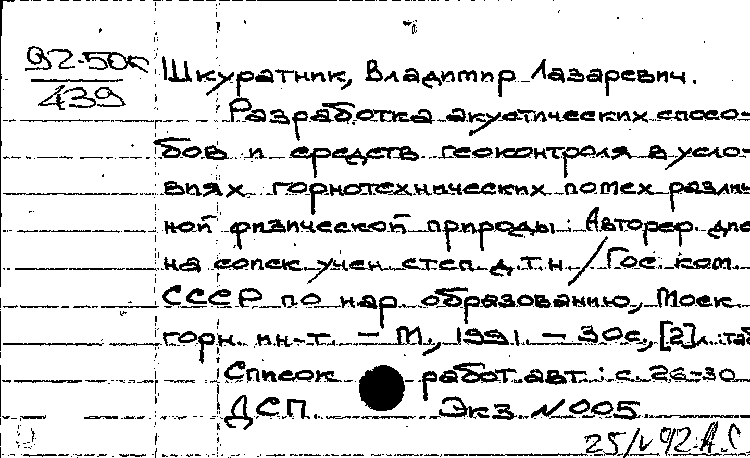 92-50к
439
Шкуратник, Владимир Лазаревич.
Разработка акустических спосо-
бов и средств геоконтроля в усло-
виях горнотехнических помех различ
ной физической природы: Автореф. дис
на соиск. учен. степ. д.т.н. / Гос. ком.
СССР по нар. образованию, Моск.
горн. ин-т. – М., 1991. – 30с., [2]л. таб
Список работ авт.: с. 26-30
ДСП. Экз N 005
25/V 92 А.С